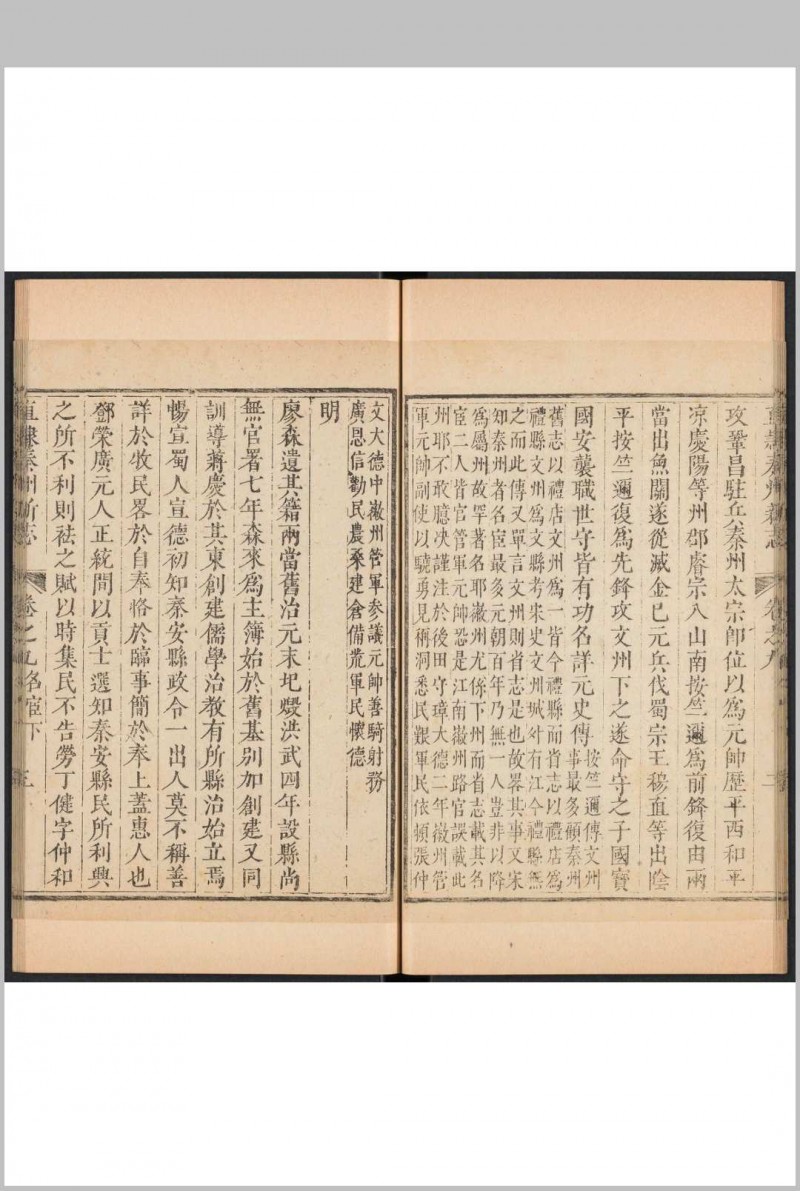 攻鞏昌駐兵秦州太宗卽位以爲元帥歷平西和平
凉慶陽等州郡睿宗入山南按竺邇爲前鋒復由兩
當出魚關遂從滅金已元兵伐蜀宗王穆直等出陰
平按竺邇復爲先鋒攻文州下之遂命守之子國寶
國安襲職世守皆有功名詳元史傳
按竺邇傳文州
事最多頋秦州
舊志以禮店文州爲一皆今禮縣而省志以禮店爲
禮縣文州爲文縣考宋史文州城外有江今禮縣無
之而此傳又單言文州則省志是也故畧其事又宋
知秦州者名宦最多元朝百年乃無一人豈非以降
爲屬州故罕著名耶徽州尤係下州而省志載其名
宦二人皆官管軍元帥恐是江南徽州路官誤載此
州耶不敢臆决謹注於後田守璋大德二年徽州管
軍元帥副使以驍勇見稱洞悉民艱軍民依頓張仲
文大德中徽州管軍參議元帥善騎射務
廣恩信勸民農桒建倉備荒軍民懷德
明
廖森遺其籍兩當舊治元末圮燬洪武四年設縣尚
無官署七年森來爲主簿始於舊基别加創建又同
訓導蔣慶於其東創建儒學治教有所縣治始立焉
暢宣蜀人宣德初知秦安縣政令一出人莫不稱善
詳於牧民畧於自奉恪於臨事簡於奉上蓋惠人也
鄧榮廣元人正統間以貢士選知秦安縣民所利興
之所不利則袪之賦以時集民不告勞丁健字仲和
直隸秦州新志
卷之九名宦下
三